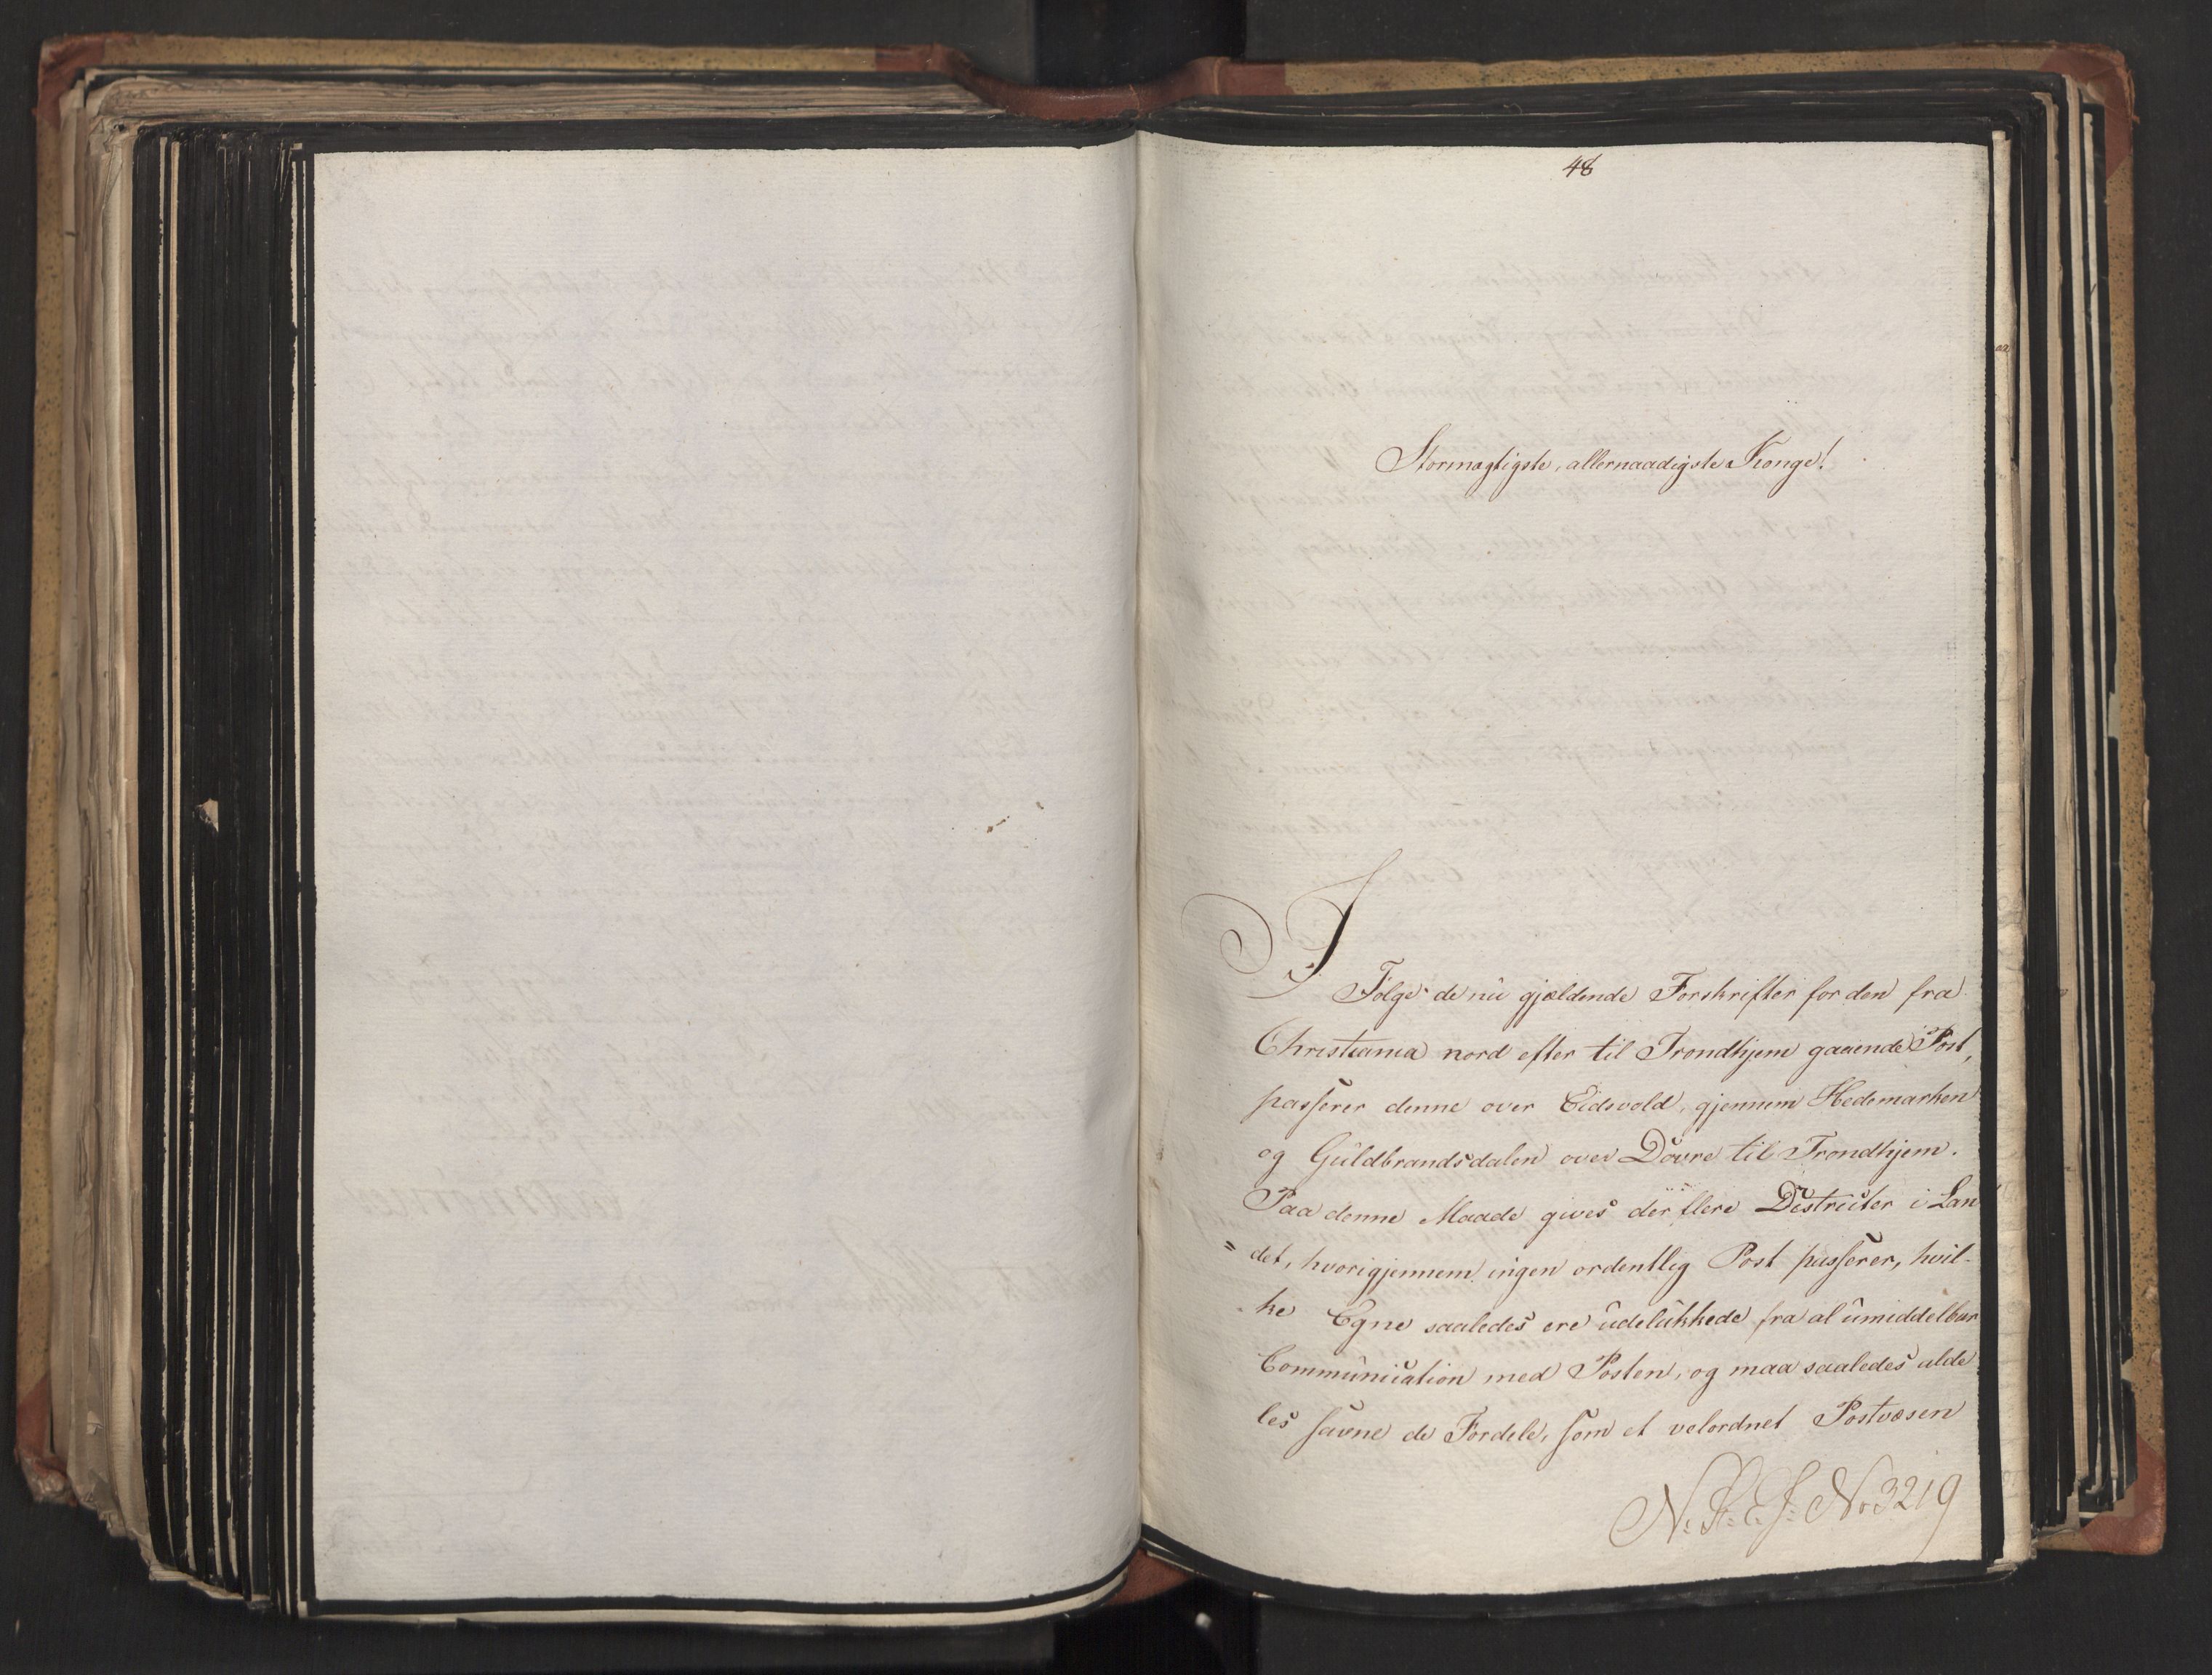 48
Stormægtigste, allernaadigste Konge!
I
Følge de nu gjældende Forskrifter for den fra
Christiania nord efter til Trondhjem gaaende Post,
passerer denne over Eidsvold, gjennem Hedemarken
og Guldbrandsdalen over Dovre til Trondhjem.
Paa denne Maade gives der flere Districter i Lan
= det, hvorigjennem ingen ordentlig Post passerer, hvil-
ke Egne saaledes ere udelukkede fra al umiddelbar
Communication med Posten, og maa saaledes alde
les savne de Fordele, som et velordnet Postvæsen
No 3219